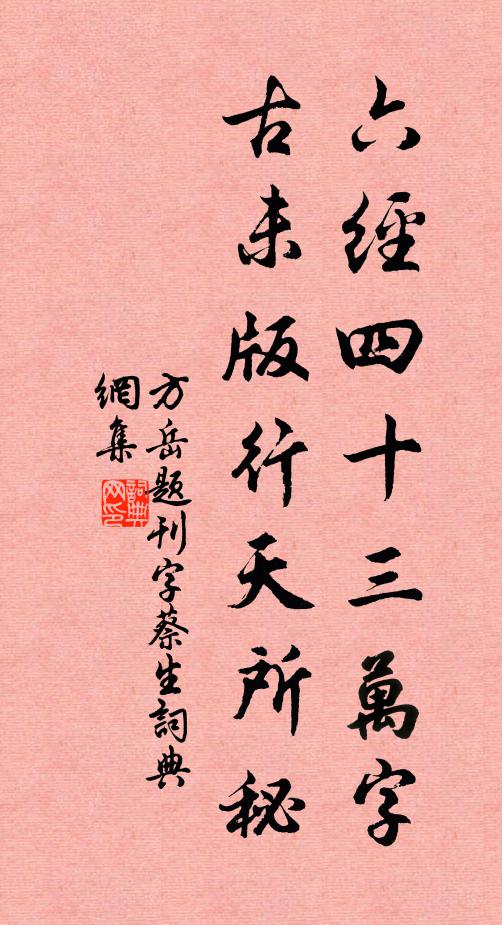 六經四十三萬字
古未版行天所秘
方岳題刊字蔡生詞典
網集
詞典
网印